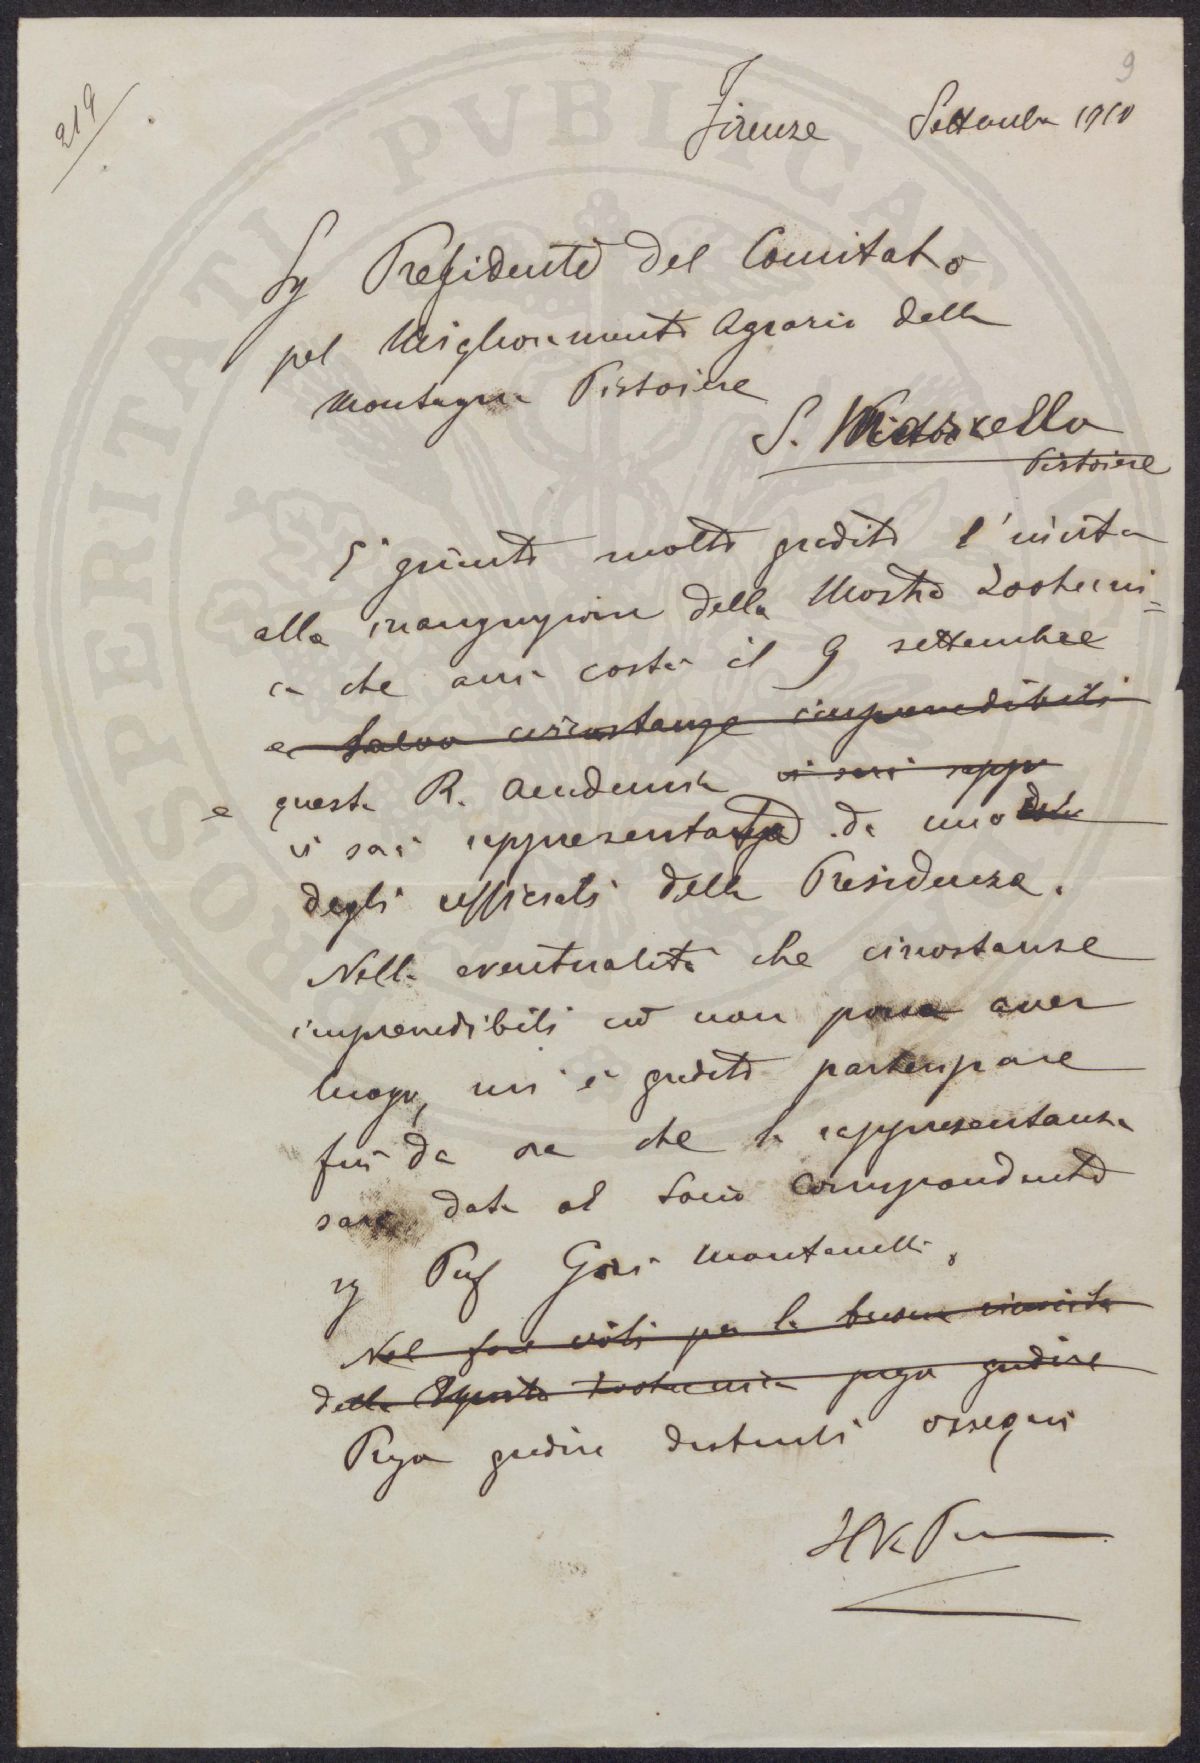 9
219
Firenze Settembre 1910
Sg Presidente del Comitato
pel Miglioramento Agrario della
Montagna Pistoiese
S. Marcello
Pistoiese
È giunto molto gradito l'invito
alla inaugurazione della Mostra Zootecni=
ca che avrà costà il 9 settembre
e salvo circostanze imprevedibili
e questa R. Accademia vi sarà rappr
vi sarà rappresentata da uno
degli ufficiali della Presidenza.
Nella eventualità che circostanze
imprevedibili ciò non possa aver
luogo, mi è gradito partecipare
fin da ora che la rappresentanza
sarà data al Socio Corrispondente
sg Prof Gori Montanelli.
Nel fare voti per la buona riuscita
della Zootecnica prego gradire
Prego gradire distinti ossequi
Il V. Pr
PROSPERITATI PVBLICAE